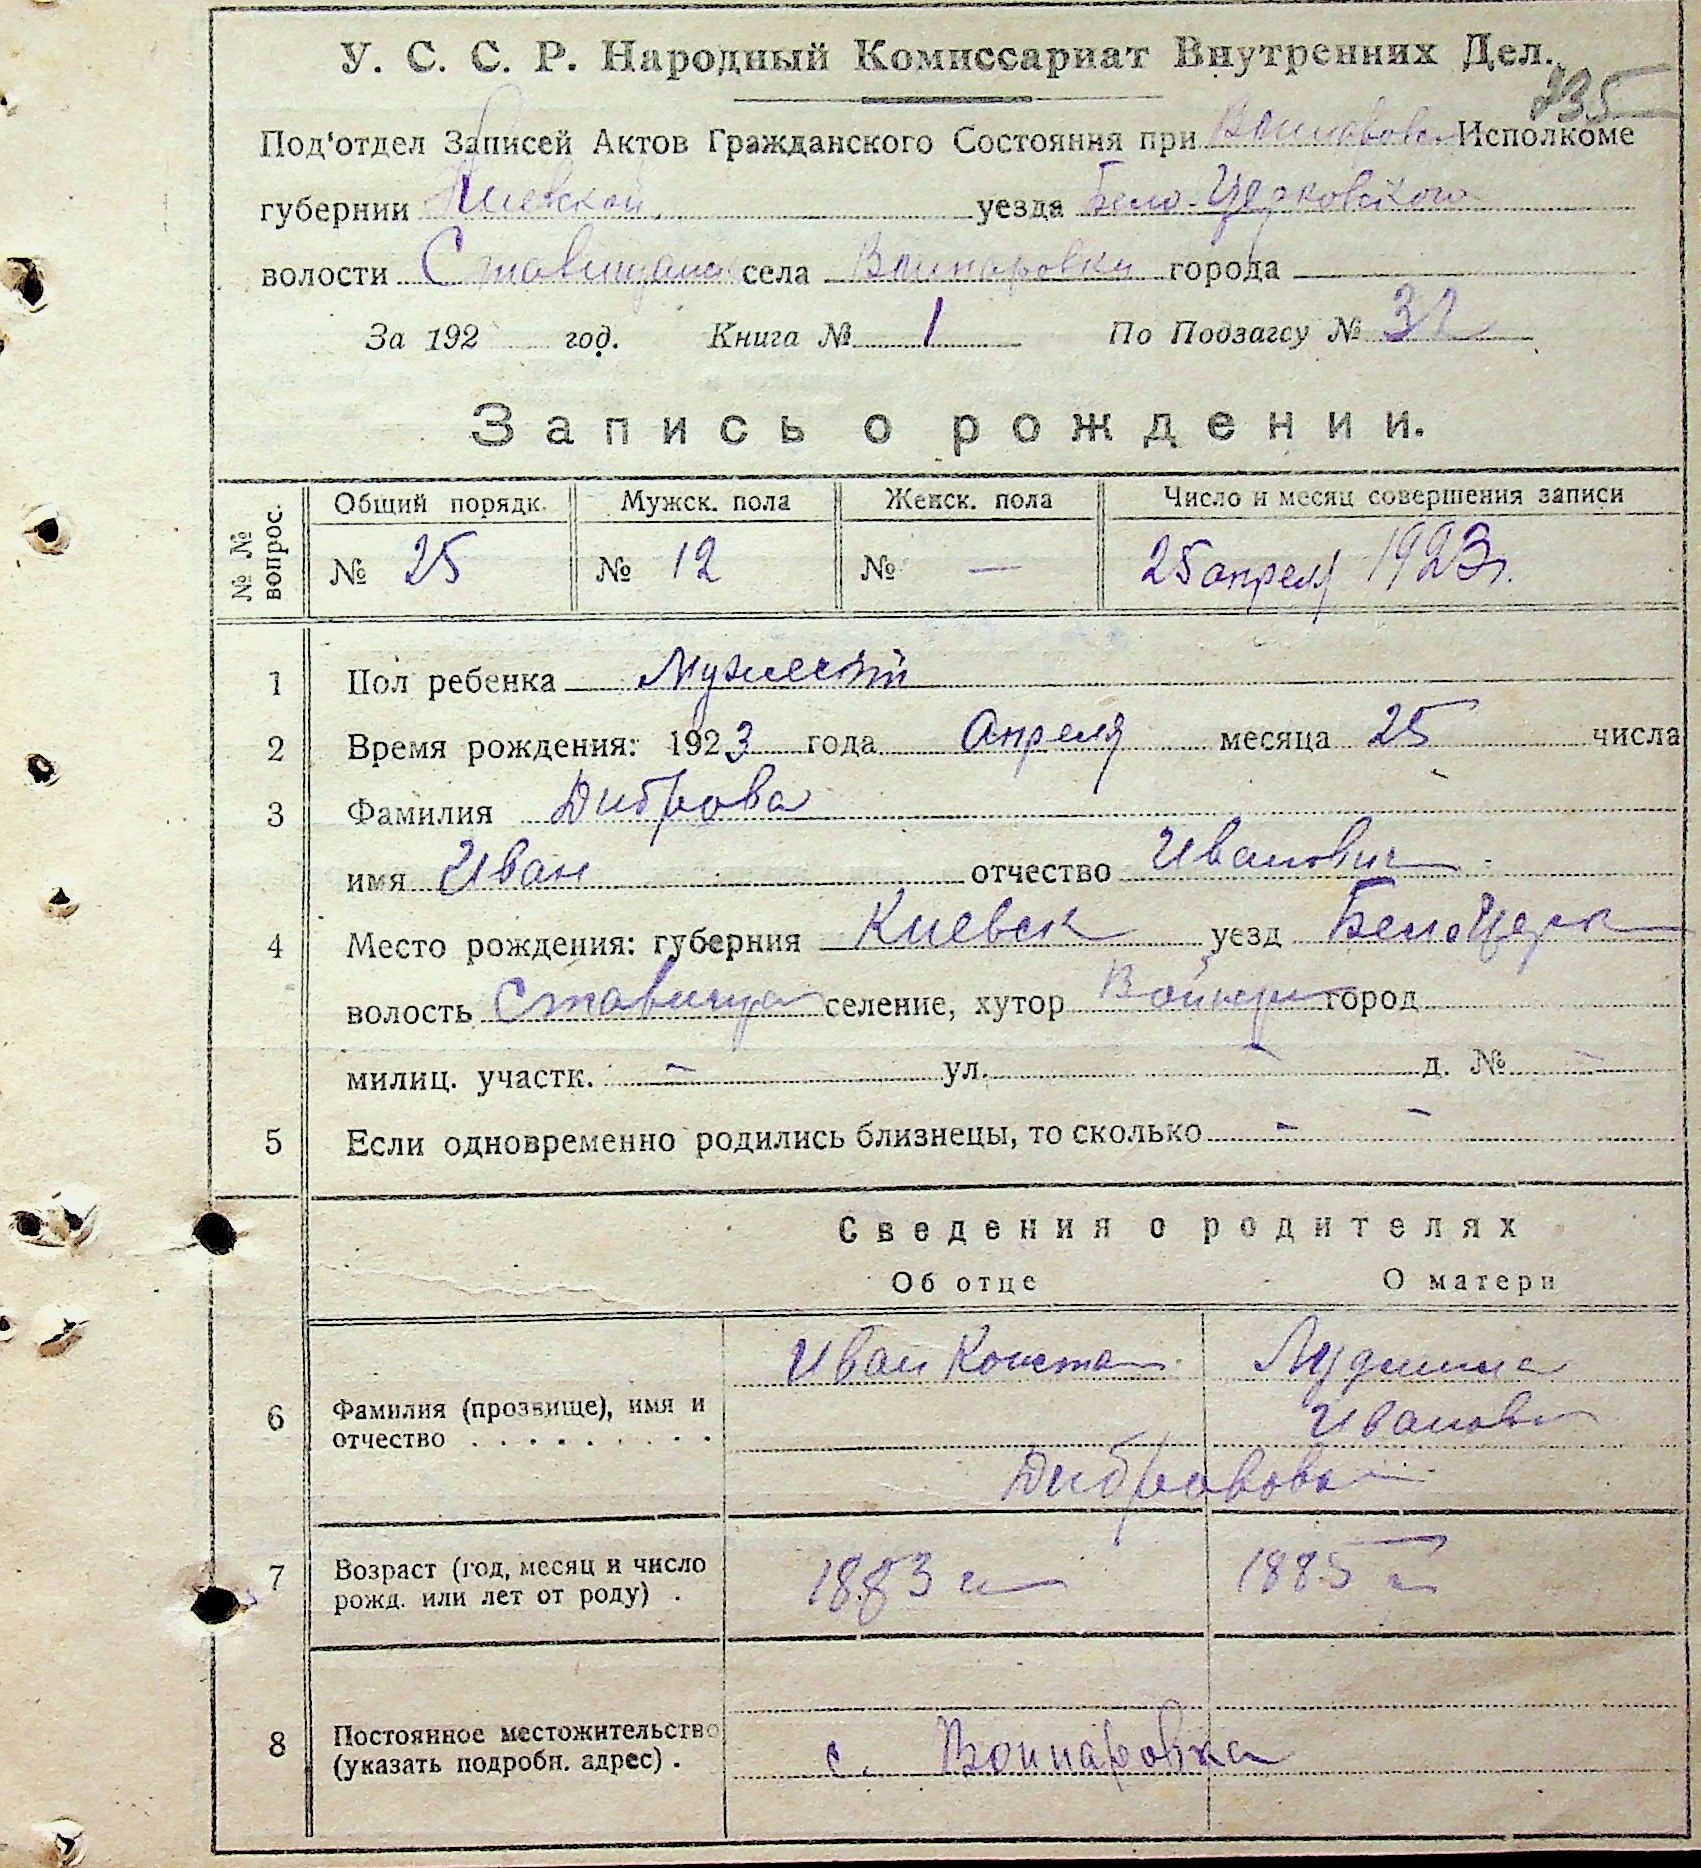 235
У. С. С. Р. Народный Комиссариат Внутренних Дел.
Под‘отдел Записей Актов Гражданского Состояния при Исполкоме
губернии Киевской уезда Бело-Церковского
волости села Войнаровки города
За 192 год. Книга № 1 По Подзагсу № 32
Запись о рождении.
№ № вопрос. Общий порядк. Мужск. пола Женск. пола Число и месяц совершения записи
№ 25 № 12 № — 25 апреля 1923 г.
1 Пол ребенка Мужеский
2 Время рождения: 1923 года Апреля месяца 25 числа
3 Фамилия Диброва
имя Иван отчество Иванович
4 Место рождения: губерния Киевск уезд Бело Церк
волость Ставища селение, хутор город
милиц. участк. – ул. – д. № –
5 Если одновременно родились близнецы, то сколько – –
Сведения о родителях
Об отце О матери
Иван Конста Лудмила
6 Фамилия (прозвище), имя и Иванов
отчество . . . . . . . . .
7 Возраст (год, месяц и число 1883 1885
рожд. или лет от роду) .
8 Постоянное местожительство
(указать подробн. адрес) . с. Войнаровка